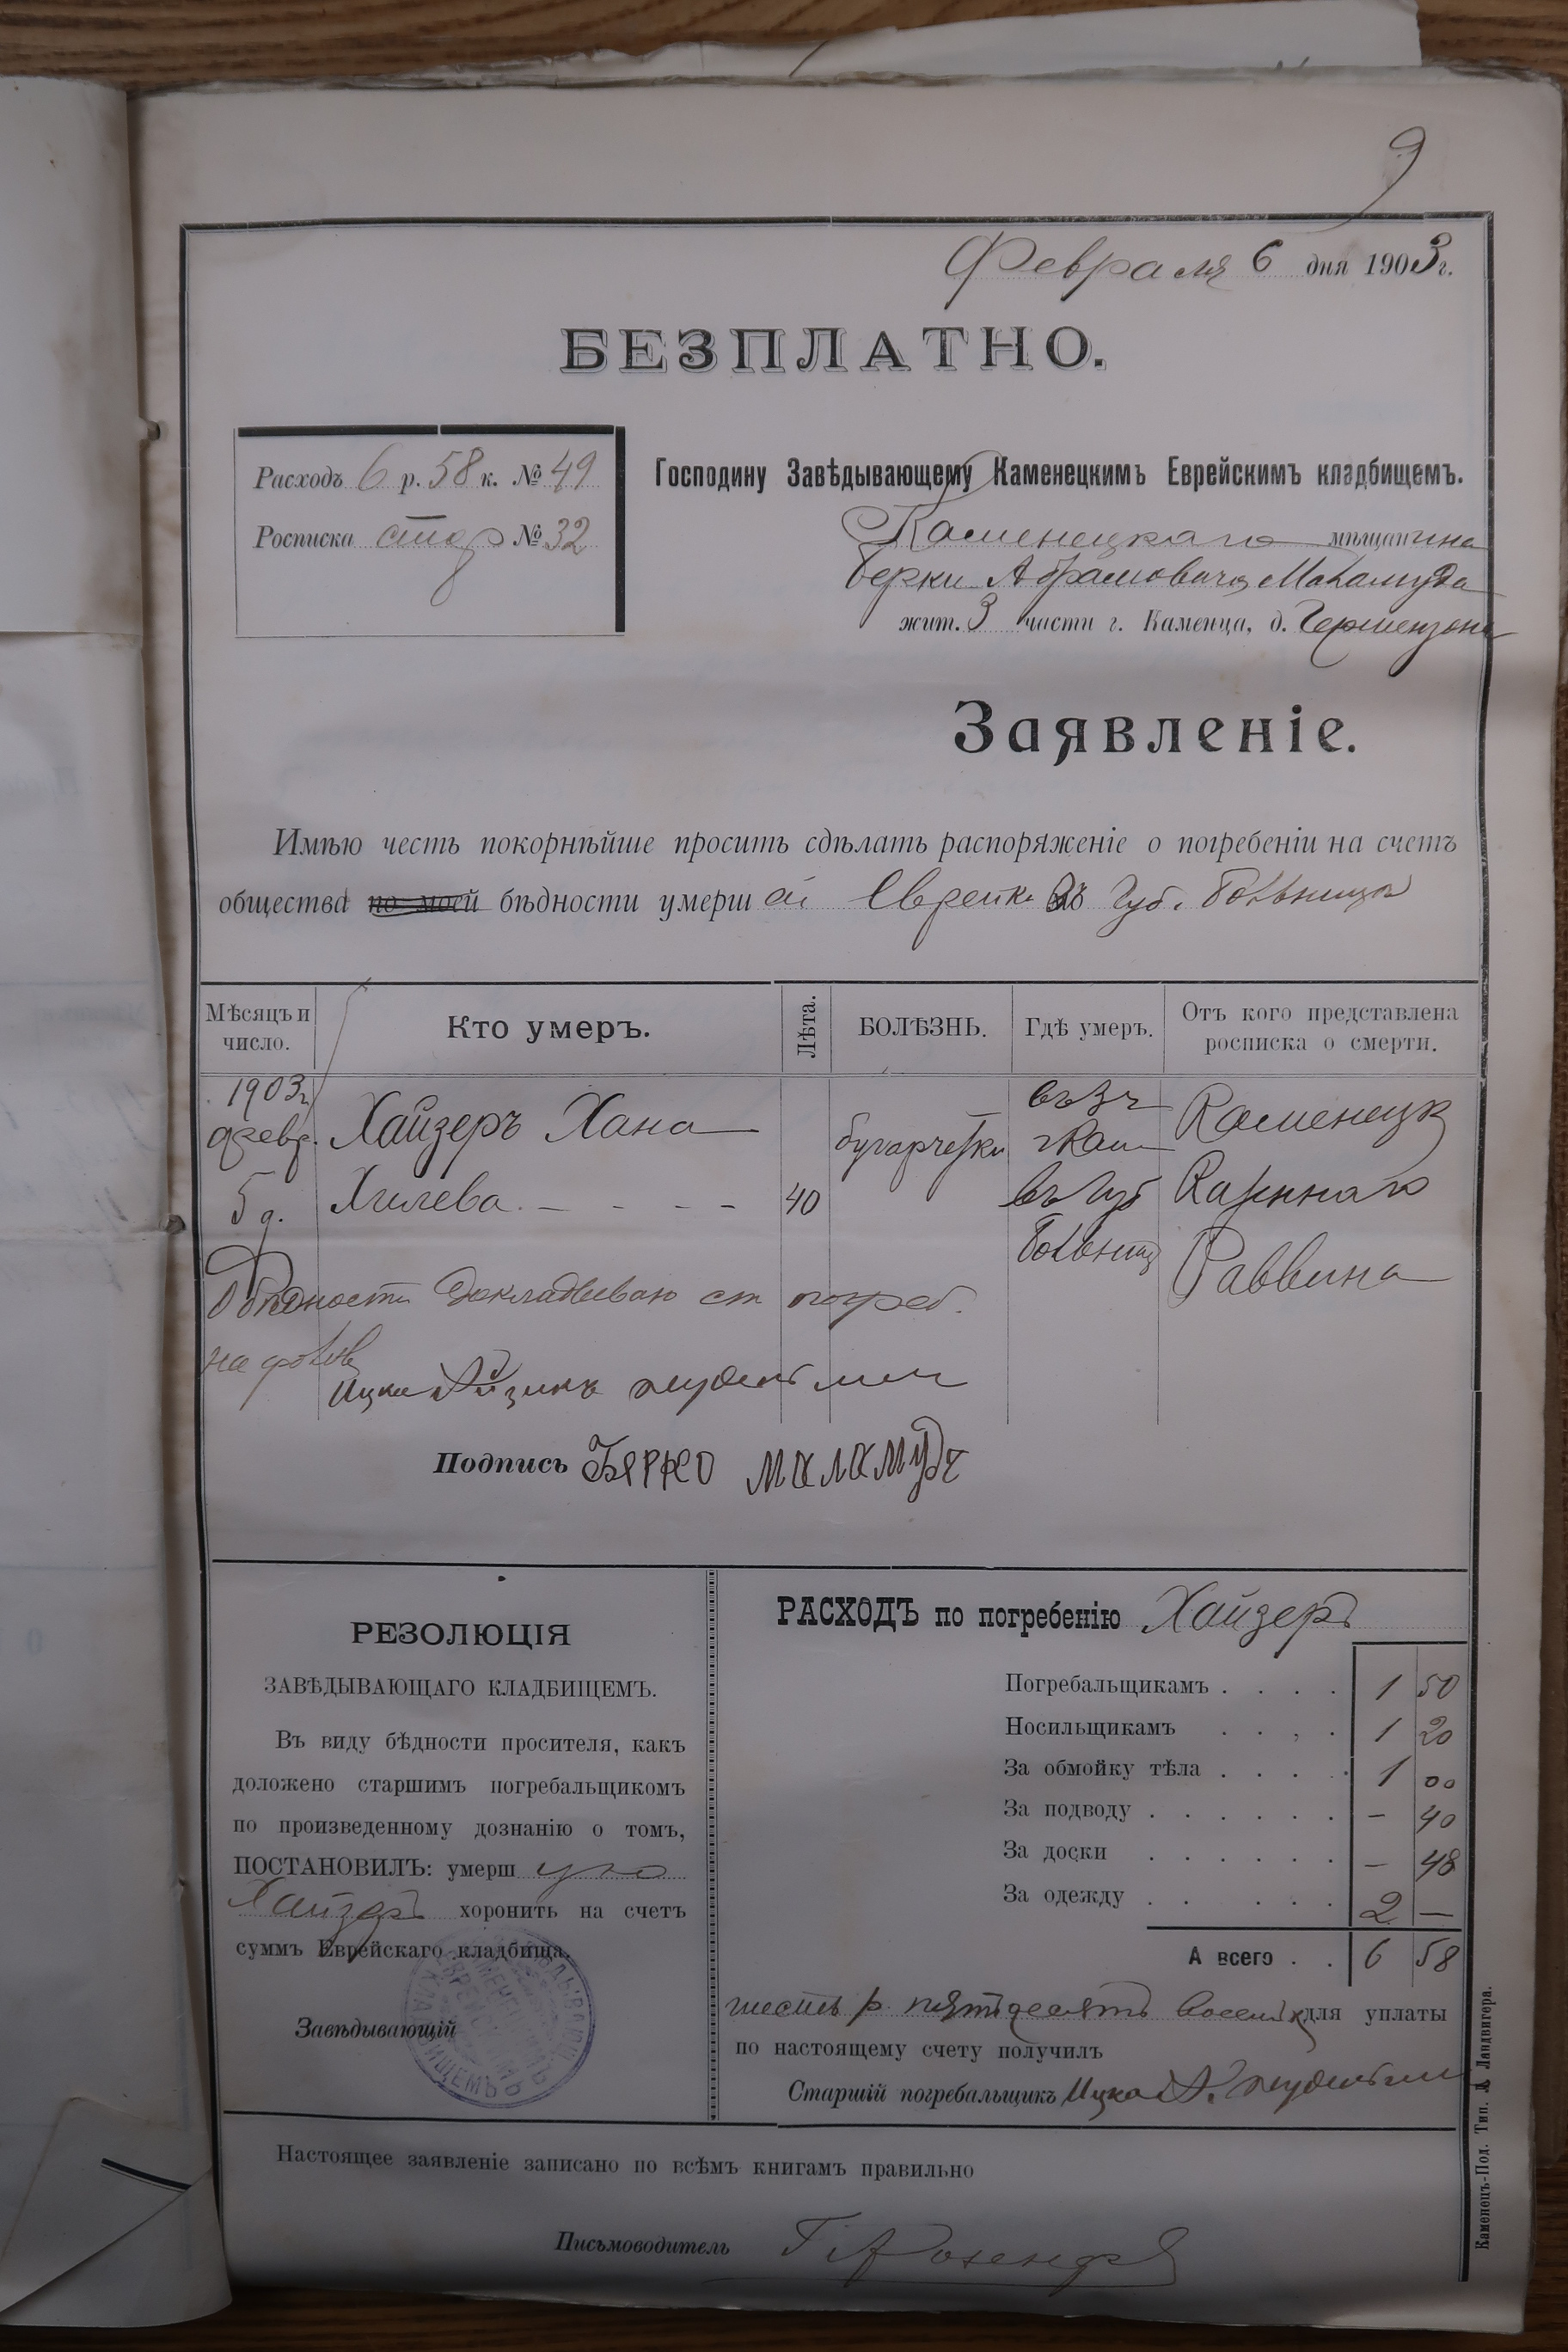 9
Февраля 6 дня 1903 г.
БЕЗПЛАТНО.
Расходъ 6 р. 58 к. № 49
Росписка № 32
Господину Завѣдывающему Каменецкимъ Еврейскимъ кладбищемъ.
Каменецкаго мѣщанина
Берки Абрамовича Маламуда
жит. 3 части г. Каменца, д.
Заявленіе.
Имѣю честь покорнѣйше просить сдѣлать распоряженіе о погребеніи на счетъ
общества по моей бѣдности умершей Еврейки въ Губ. Больницѣ
Мѣсяцъ и число.
Кто умеръ.
Лѣта.
БОЛѢЗНЬ.
Гдѣ умеръ.
Отъ кого представлена росписка о смерти.
1903 г.
февр.
5 д.
Хайзеръ Хана
Хилева
40
бугорчатки
въ
въ Губ
Больниц
Каменецк
Казеннаго
Раввина
О бѣдности докладываю ст погреб.
Ицко Айзикъ
Подпись Бярко маламудъ
РЕЗОЛЮЦІЯ
ЗАВѢДЫВАЮЩАГО КЛАДБИЩЕМЪ.
Въ виду бѣдности просителя, какъ
доложено старшимъ погребальщикомъ
по произведенному дознанію о томъ,
ПОСТАНОВИЛЪ: умершую
Хайзеръ хоронить на счетъ
суммъ Еврейскаго кладбища.
Завѣдывающій
ЗАВѢДЫВАЮЩ КАМЕНЕЦКИМЪ ЕВРЕЙСКИМЪ КЛАДБИЩЕМЪ
РАСХОДЪ по погребенію Хайзеръ
Погребальщикамъ . . . . 1 50
Носильщикамъ . . . . 1 20
За обмойку тѣла . . . . 1 00
За подводу . . . . . . – 40
За доски . . . . . . – 48
За одежду . . . . . 2 —
А всего . . 6 58
шесть р. пятьдесятъ восемь к для уплаты
по настоящему счету получилъ
Старшій погребальщикъ Ицко А.
Настоящее заявленіе записано по всѣмъ книгамъ правильно
Письмоводитель
Каменецъ-Под. Тип. Л. Ландвигера.